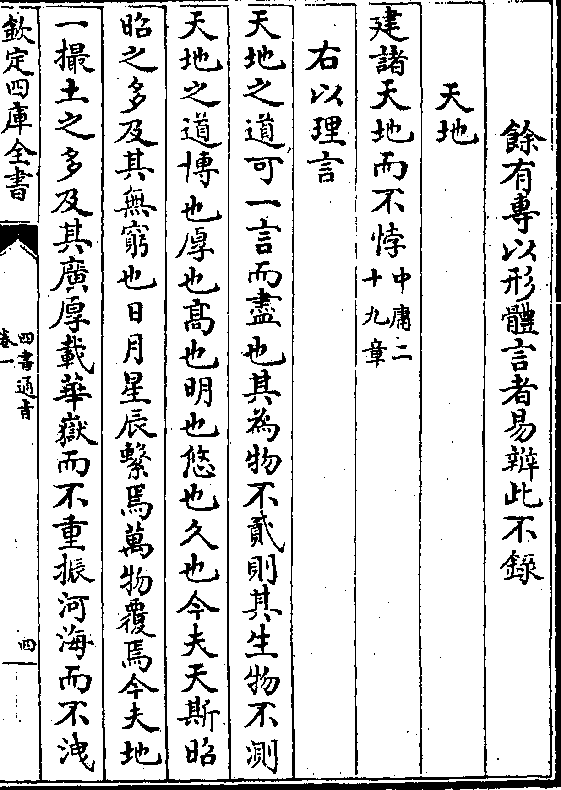 餘有專以形體言者易辨此不錄
天地
建諸天地而不悖中庸二十九章
右以理言
天地之道可一言而盡也其為物不貳則其生物不測
天地之道博也厚也高也明也悠也久也今夫天斯昭
昭之多及其無窮也日月星辰繫焉萬物覆焉今夫地
一撮土之多及其廣厚載華嶽而不重振河海而不洩
欽定四庫全書
四書通旨
卷一
四